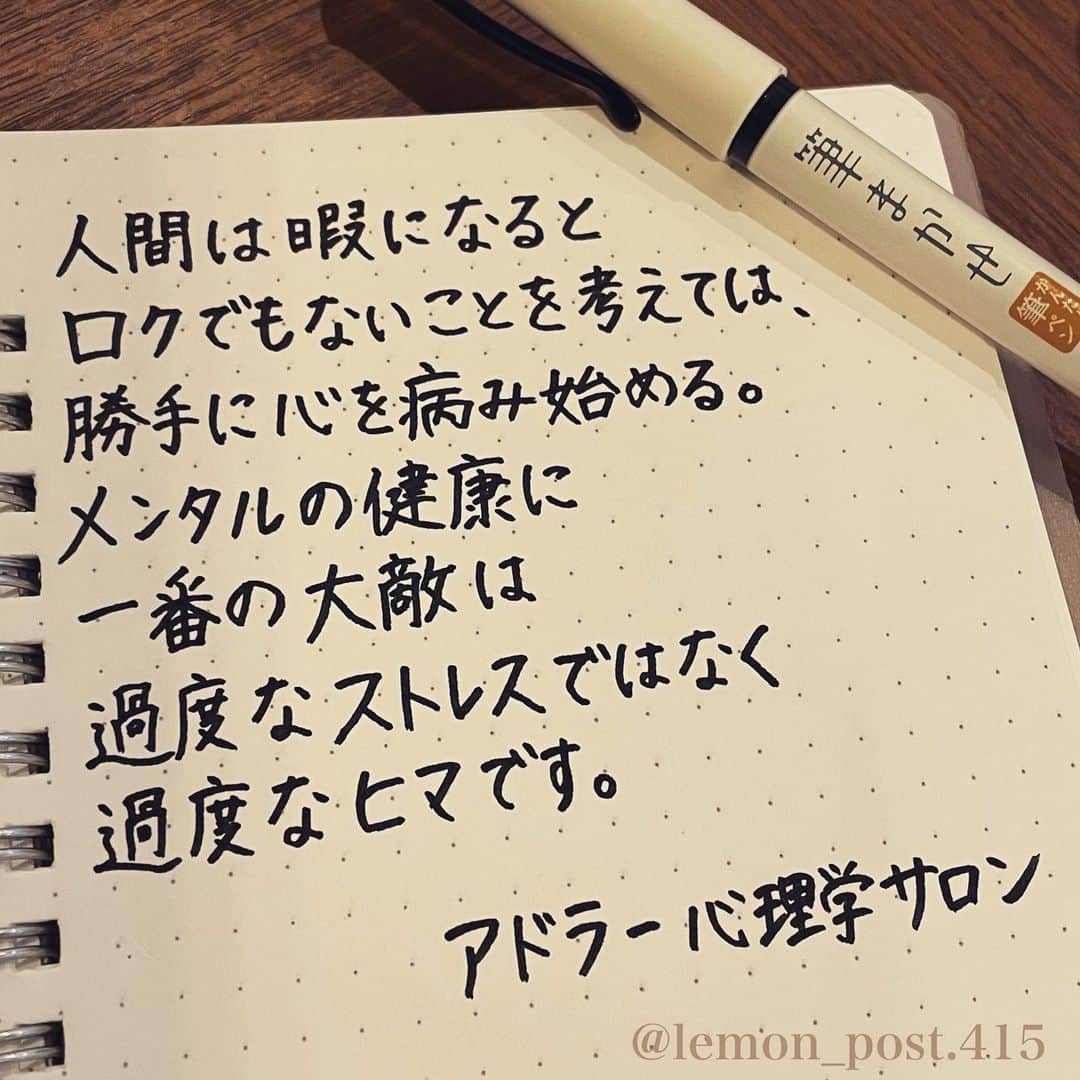 人間は暇になると
ロクでもないことを考えては、
勝手に心を病み始める。
メンタルの健康に
一番の大敵は
過度なストレスではなく
過度なヒマです。
アドラー心理学サロン
筆まかせ
かんたん
筆ペン
@lemon_post.415